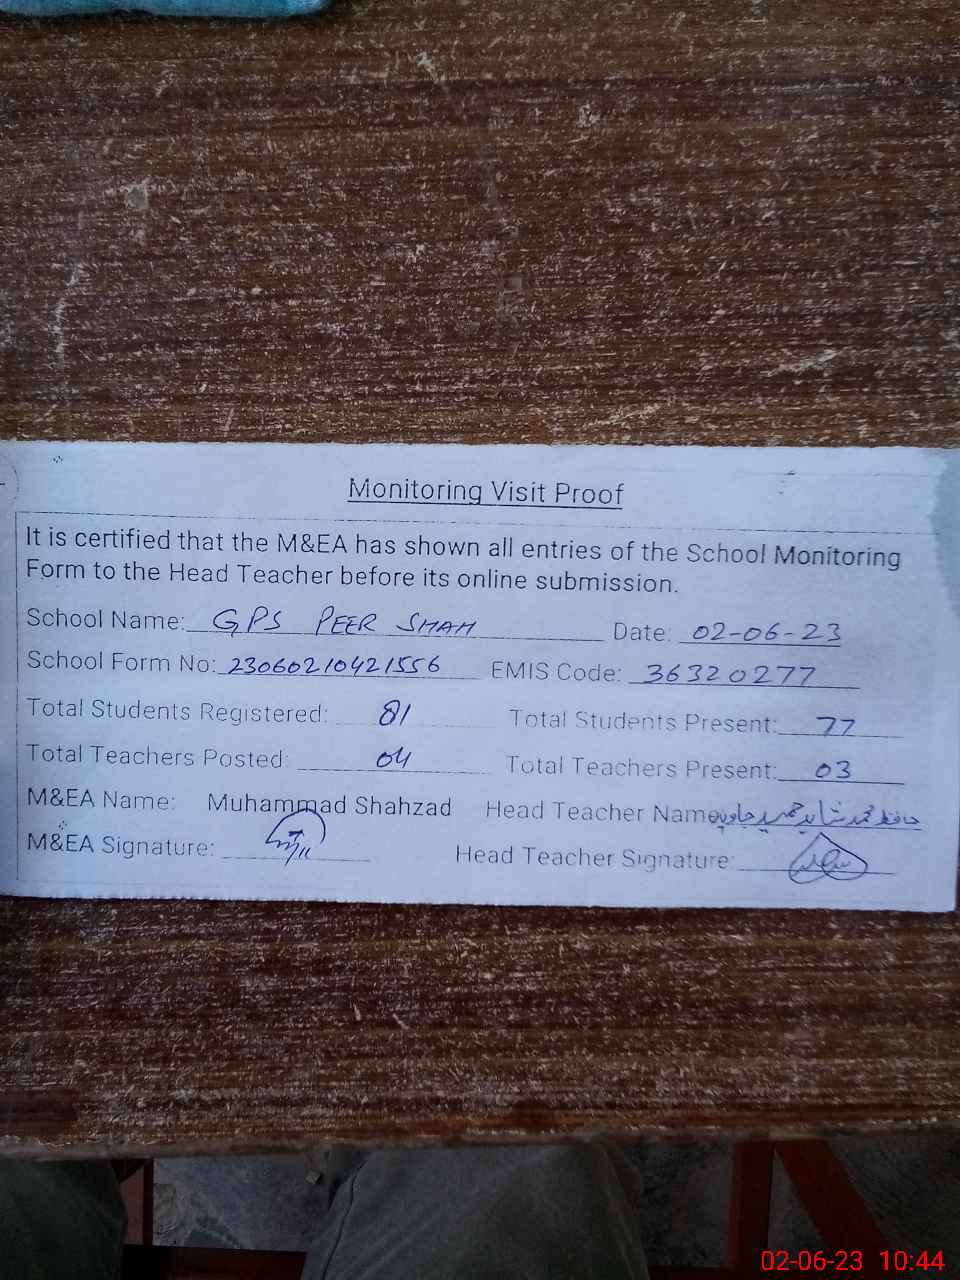 Monitoring Visit Proof
It is certified that the M&EA has shown all entries of the School Monitoring
Form to the Head Teacher before its online submission.
School Name: GPS PEER SHAH Date: 02-06-23
School Form No: 23060210421556 EMIS Code: 36320277
Total Students Registered: 81 Total Students Present: 77
Total Teachers Posted: 04 Total Teachers Present: 03
M&EA Name: Muhammad Shahzad Head Teacher Name حافظ محمد شاہد حمید جاوید
M&EA Signature: Head Teacher Signature:
02-06-23 10:44